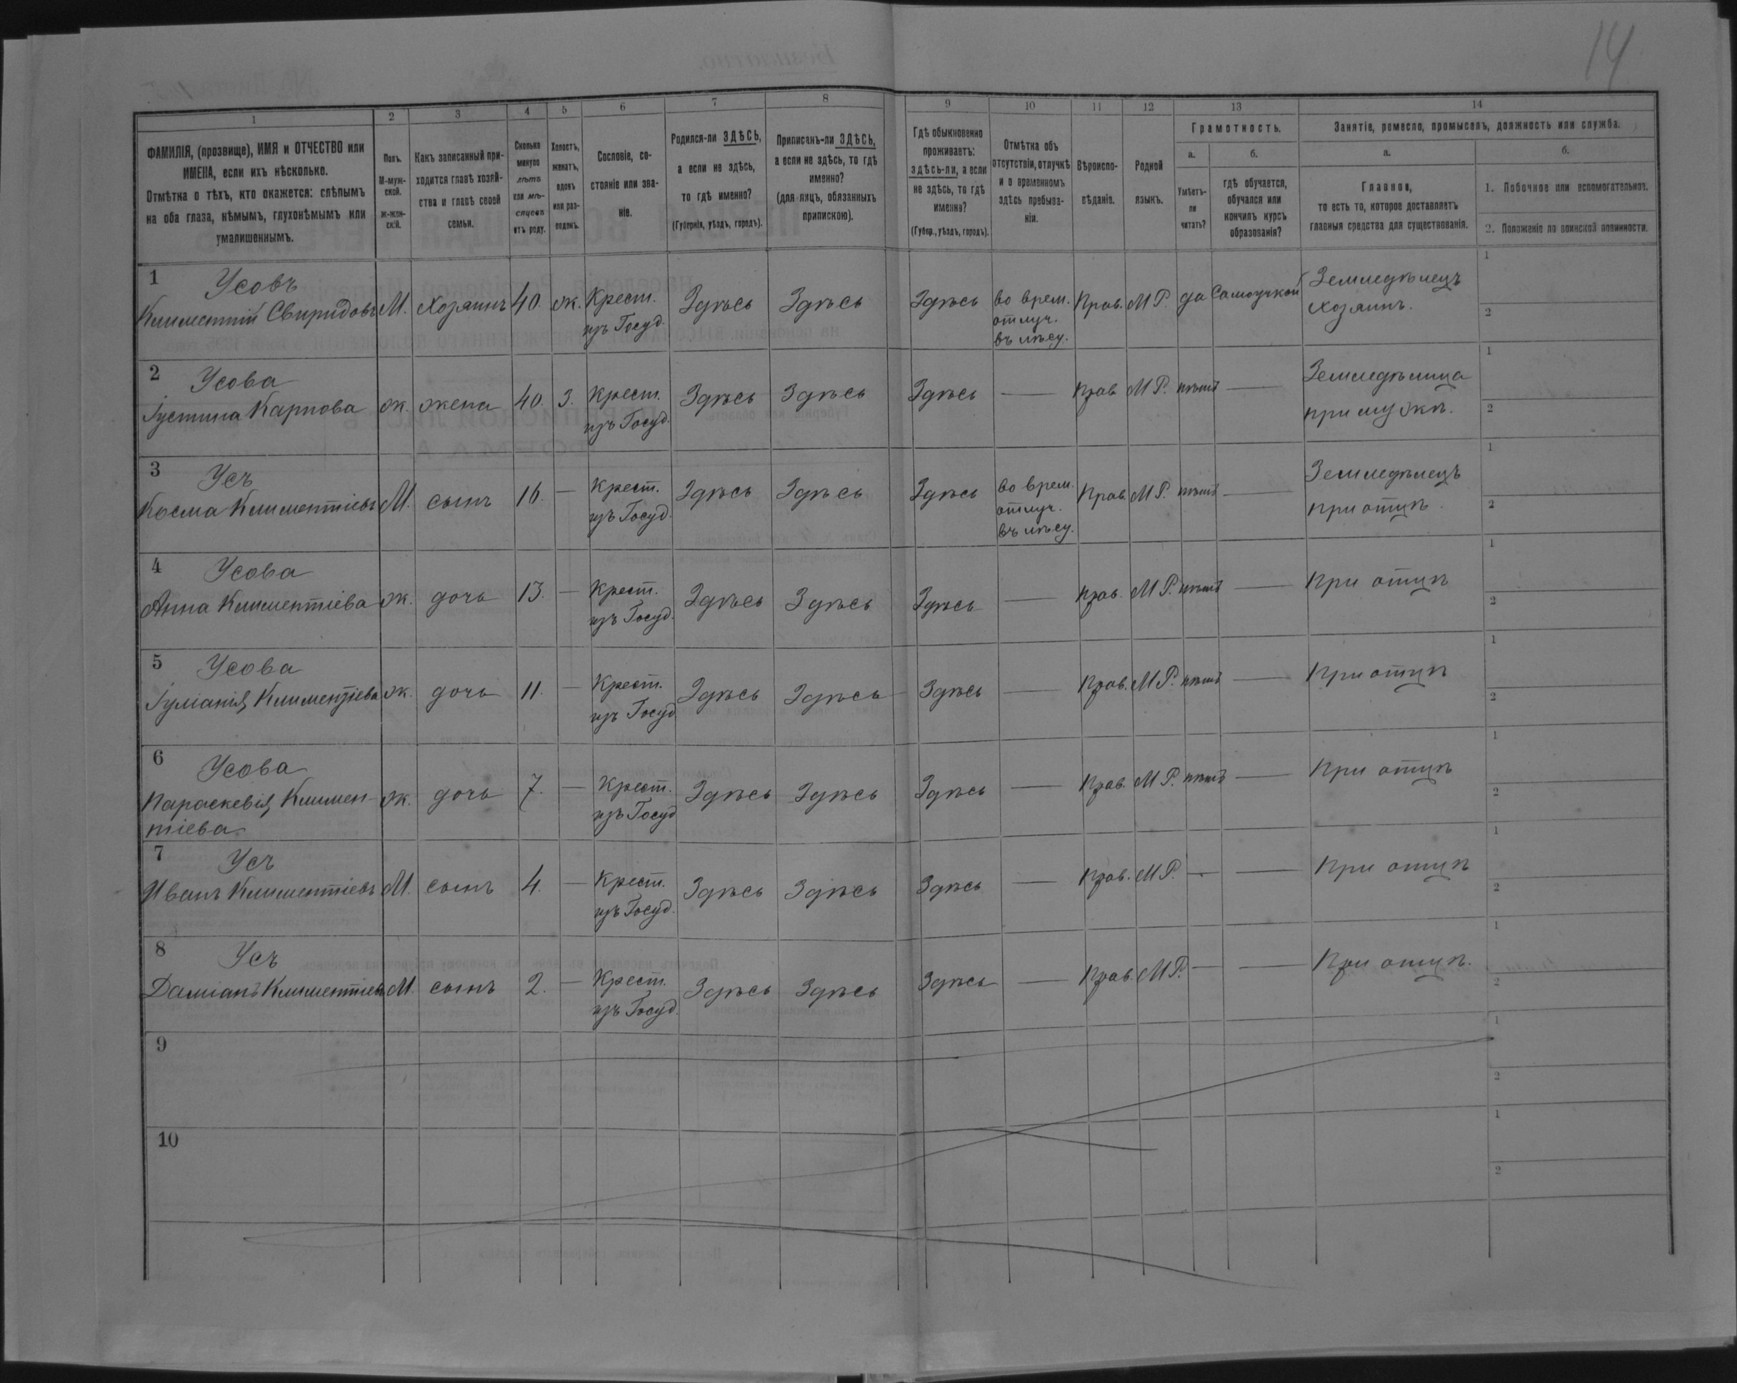 14
1 2 3 4 5 6 7 8 9 10 11 12 13 14
ФАМИЛІЯ, (прозвище), ИМЯ и ОТЧЕСТВО или
ИМЕНА, если ихъ нѣсколько.
Отмѣтка о тѣхъ, кто окажется: слѣпымъ
на оба глаза, нѣмымъ, глухонѣмымъ или
умалишеннымъ.
Полъ.
М-муж-
ской.
Ж-жен-
скій.
Какъ записанный при-
ходится главѣ хозяй-
ства и главѣ своей
семьи.
Сколько
минуло
лѣтъ
или мѣ-
сяцевъ
отъ роду.
Холостъ,
женатъ,
вдовъ
или раз-
веденъ.
Сословіе, со-
стояніе или зва-
ніе.
Родился-ли ЗДѢСЬ,
а если не здѣсь,
то гдѣ именно?
(Губернія, уѣздъ, городъ).
Приписанъ-ли ЗДѢСЬ,
а если не здѣсь, то гдѣ
именно?
(для лицъ, обязанныхъ
припискою).
Гдѣ обыкновенно
проживаетъ:
здѣсь-ли, а если
не здѣсь, то гдѣ
именно?
(Губер., уѣздъ, городъ).
Отмѣтка объ
отсутствіи, отлучкѣ
и о временномъ
здѣсь пребыва-
ніи.
Вѣроиспо-
вѣданіе.
Родной
языкъ.
Грамотность.
а.
Умѣетъ-
ли
читать?
б.
гдѣ обучается,
обучался или
кончилъ курсъ
образованія?
Занятіе, ремесло, промыселъ, должность или служба.
а.
Главное,
то есть то, которое доставляетъ
главныя средства для существованія.
б.
1. Побочное или вспомогательное.
2. Положеніе по воинской повинности.
1 Усовъ
Климентій Свиридовъ М. Хозяинъ 40. ж. Крест. изъ Госуд. Здѣсь Здѣсь Здѣсь во врем. отлуч. въ лѣсу. Прав. М Р. да Самоучкой Земледѣлецъ хозяинъ. 1 2
2 Усова
Іустина Карпова ж. жена 40. З. Крест. изъ Госуд. Здѣсь Здѣсь Здѣсь — Прав М Р. нѣтъ — Земледѣлица при мужѣ. 1 2
3 Усъ
Косма Климентіевъ М. сынъ 16. — Крест. изъ Госуд. Здѣсь Здѣсь Здѣсь во врем. отлуч. въ лѣсу. Прав М Р. нѣтъ — Земледѣлецъ при отцѣ. 1 2
4 Усова
Анна Климентіева ж. дочь 13. — Крест. изъ Госуд. Здѣсь Здѣсь Здѣсь — Прав. М Р. нѣтъ — При отцѣ 1 2
5 Усова
Іуліанія Климентіева ж. дочь 11. — Крест. изъ Госуд Здѣсь Здѣсь Здѣсь — Прав. М Р. нѣтъ — При отцѣ 1 2
6 Усова
Параскевія Климен-
тіева ж. дочь 7. — Крест. изъ Госуд Здѣсь Здѣсь Здѣсь — Прав. М Р. нѣтъ — При отцѣ 1 2
7 Усъ
Иванъ Климентіевъ М. сынъ 4. — Крест. изъ Госуд. Здѣсь Здѣсь Здѣсь — Прав. М Р. — — При отцѣ 1 2
8 Усъ
Даміанъ Климентіевъ М. сынъ 2. — Крест. изъ Госуд. Здѣсь Здѣсь Здѣсь — Прав М Р. — — При отцѣ. 1 2
9 1 2
10 1 2